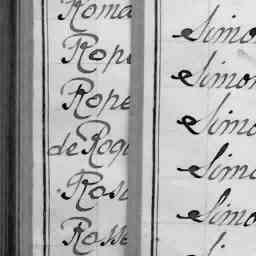 Roma
Rope
Rope
de Roqu
Rosa
Rosse
Simon
Simon
Simo
Simo
Simo